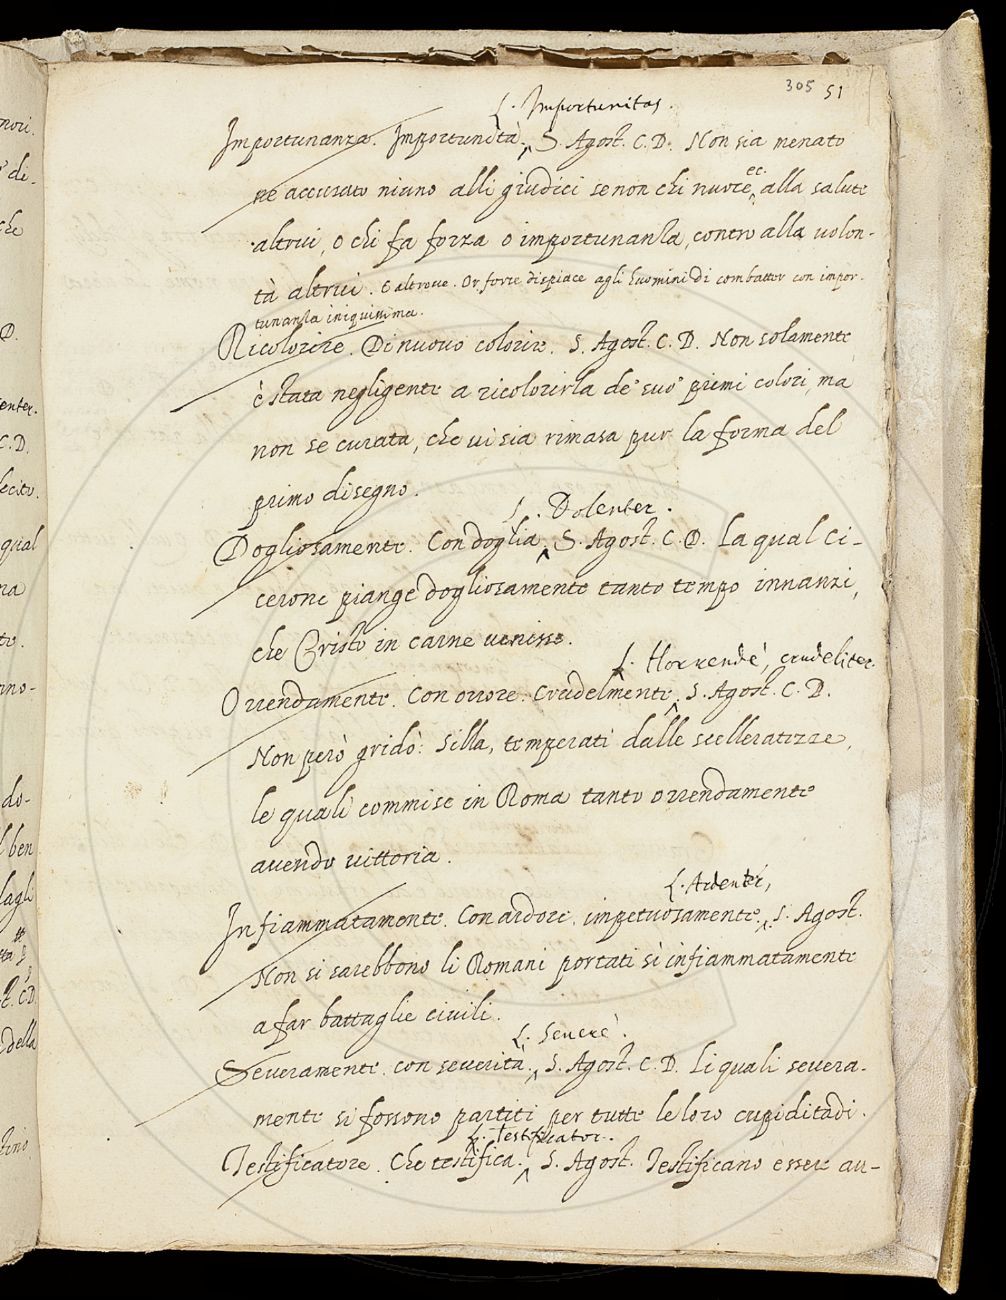 305 51
L. Importunitas.
Importunanza. Importunità. S. Agost. C. D. Non sia menato
ne accusato niuno alli giudici se non chi nuoce ec. alla salute
altrui, o chi fa forza o importunanza, contro alla volon-
tà altrui. E altrove. Or forse dispiace agli huomini di combatter con impor-
tunanza iniquissima.
Ricolorire. Di nuovo colorire. S. Agost. C. D. Non solamente
è stata negligente a ricolorirla de' suo' primi colori, ma
non se curata, che vi sia rimasa pur la forma del
primo disegno.
L. Dolenter.
Dogliosamente. Con doglia. S. Agost. C. D. La qual Ci-
cerone piange dogliosamente tanto tempo innanzi,
che Cristo in carne venisse.
L. Horrendè, crudeliter.
Orrendamente. Con orrore. Crudelmente. S. Agost. C. D.
Non però gridò: Silla, temperati dalle scelleratezze,
le quali commise in Roma tanto orrendamente
avendo vittoria.
L. Ardenter,
Infiammatamente. Con ardore. impetuosamente. S. Agost.
Non si sarebbono li Romani portati sì infiammatamente
a far battaglie civili.
L. Severè.
Severamente. con severità. S. Agost. C. D. Li quali severa-
mente si fossono partiti per tutte le loro cupiditadi.
L. Testificator.
Testificatore. Che testifica. S. Agost. Testificano essere au-
nori.
di-
che
D.
C. D.
lecito.
qual
na
no-
do-
l ben
C. D.
della